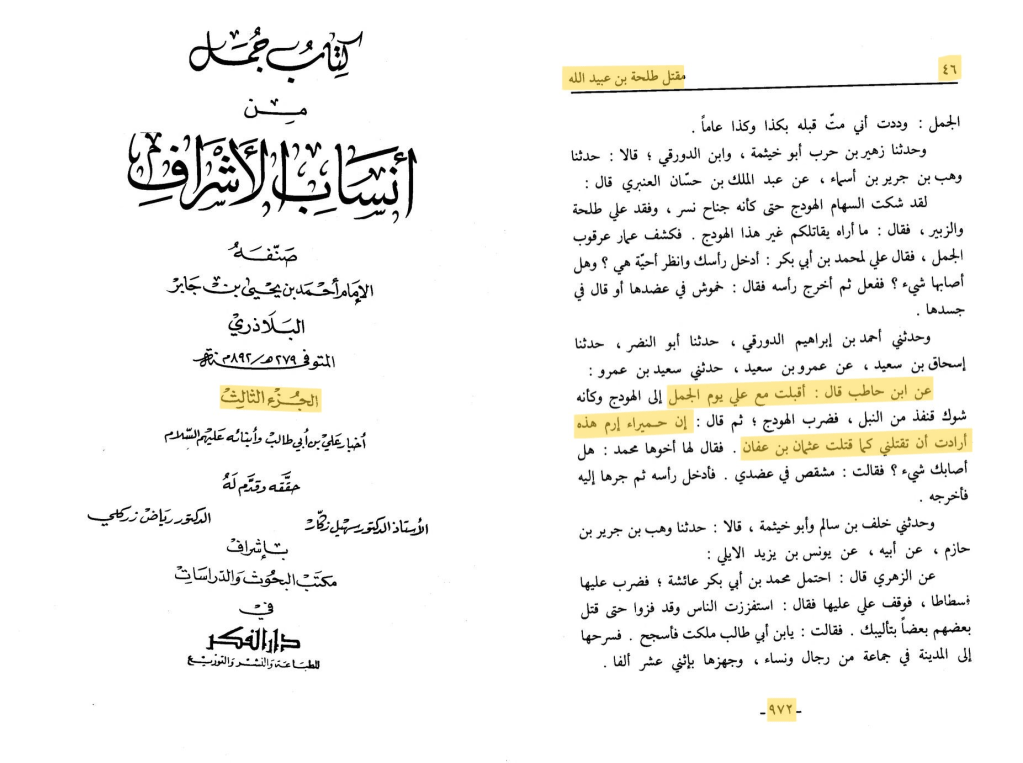 كتاب جمل
من
أنساب الأشراف
صنّفه
الإمام أحمد بن يحيى بن جابر
البلاذري
المتوفى ٢٧٩ه‍/٨٩٢م
الجزء الثالث
أخبار علي بن أبي طالب وأبنائه عليهم السلام
حققه وقدّم له
الأستاذ الدكتور سهيل زكّار الدكتور رياض زركلي
بإشراف
مكتب البحوث والدراسات
في
دار الفكر
للطباعة والنشر والتوزيع
٤٦ مقتل طلحة بن عبيد الله
الجمل : وددت أني متّ قبله بكذا وكذا عاماً .
وحدثنا زهير بن حرب أبو خيثمة ، وابن الدورقي ؛ قالا : حدثنا
وهب بن جرير بن أسماء ، عن عبد الملك بن حسّان العنبري قال :
لقد شكت السهام الهودج حتى كأنه جناح نسر ، وفقد علي طلحة
والزبير ، فقال : ما أراه يقاتلكم غير هذا الهودج . فكشف عمار عرقوب
الجمل ، فقال علي لمحمد بن أبي بكر : أدخل رأسك وانظر أحيّة هي ؟ وهل
أصابها شيء ؟ ففعل ثم أخرج رأسه فقال : خموش في عضدها أو قال في
جسدها .
وحدثني أحمد بن إبراهيم الدورقي ، حدثنا أبو النضر ، حدثنا
إسحاق بن سعيد ، عن عمرو بن سعيد ، حدثني سعيد بن عمرو :
عن ابن حاطب قال : أقبلت مع علي يوم الجمل إلى الهودج وكأنه
شوك قنفذ من النبل ، فضرب الهودج ؛ ثم قال : إن حميراء إرم هذه
أرادت أن تقتلني كما قتلت عثمان بن عفان . فقال لها أخوها محمد : هل
أصابك شيء ؟ فقالت : مشقص في عضدي . فأدخل رأسه ثم جرها إليه
فأخرجه .
وحدثني خلف بن سالم وأبو خيثمة ، قالا : حدثنا وهب بن جرير بن
حازم ، عن أبيه ، عن يونس بن يزيد الايلي :
عن الزهري قال : احتمل محمد بن أبي بكر عائشة ؛ فضرب عليها
فسطاطا ، فوقف علي عليها فقال : استفززت الناس وقد فزوا حتى قتل
بعضهم بعضاً بتأليبك . فقالت : يابن أبي طالب ملكت فأسجح . فسرحها
إلى المدينة في جماعة من رجال ونساء ، وجهزها بإثني عشر ألفا .
- ٩٧٢ -